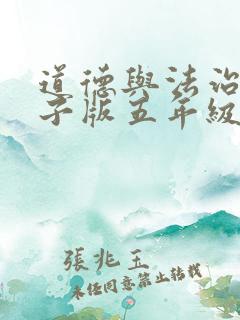 道德與法治
子版五年級
張兆玉
未經同意禁止轉載